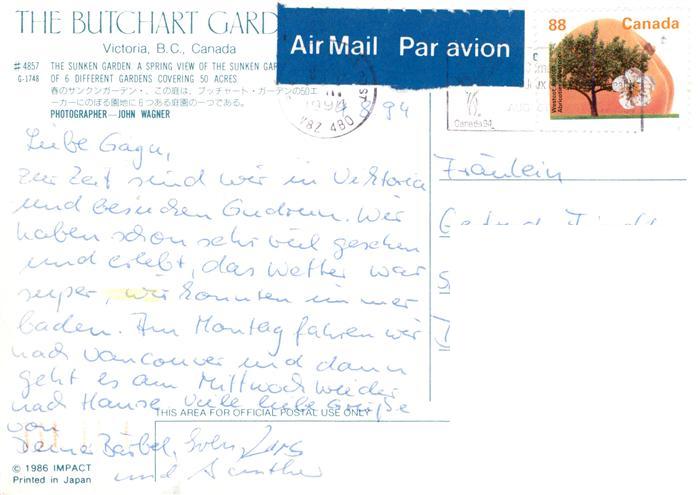 THE BUTCHART GARD
Victoria, B.C., Canada
#4857 THE SUNKEN GARDEN A SPRING VIEW OF THE SUNKEN GAR
G-1748 OF 6 DIFFERENT GARDENS COVERING 50 ACRES
春のサンクンガーデン・、この庭は、ブッチャート・ガーデンの50エ
ーカーにのぼる園地に6つある庭園の一つである。
PHOTOGRAPHER—JOHN WAGNER
Air Mail Par avion
88 Canada
1994
V8Z 4B0
Canada 94
8 94
Liebe Gagu,
zur Zeit sind wir in Viktoria
und besuchen Gudrun. Wir
haben schon sehr viel gesehen
und erlebt, das Wetter war
super, wir konnten immer
baden. Am Montag fahren wir
nach Vancouver und dann
geht es am Mittwoch wieder
nach Hause. Viele liebe Grüße
von
Deine Bärbel, Sven, Lars
und Günther
Fräulein
THIS AREA FOR OFFICIAL POSTAL USE ONLY
© 1986 IMPACT
Printed in Japan